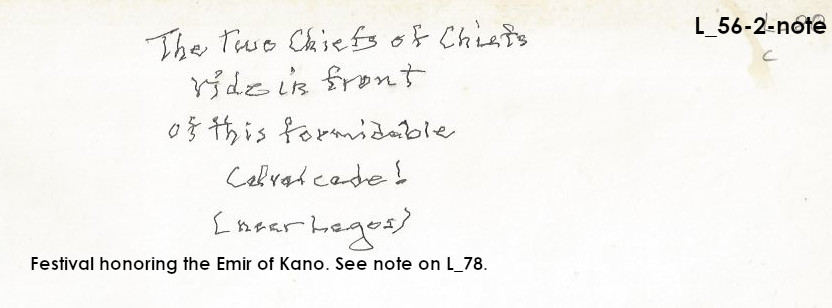 L_56-2-note
c
The Two Chiefs of Chiefs
ride in front
of this formidable
Calvalcade!
(near Lagos)
Festival honoring the Emir of Kano. See note on L_78.